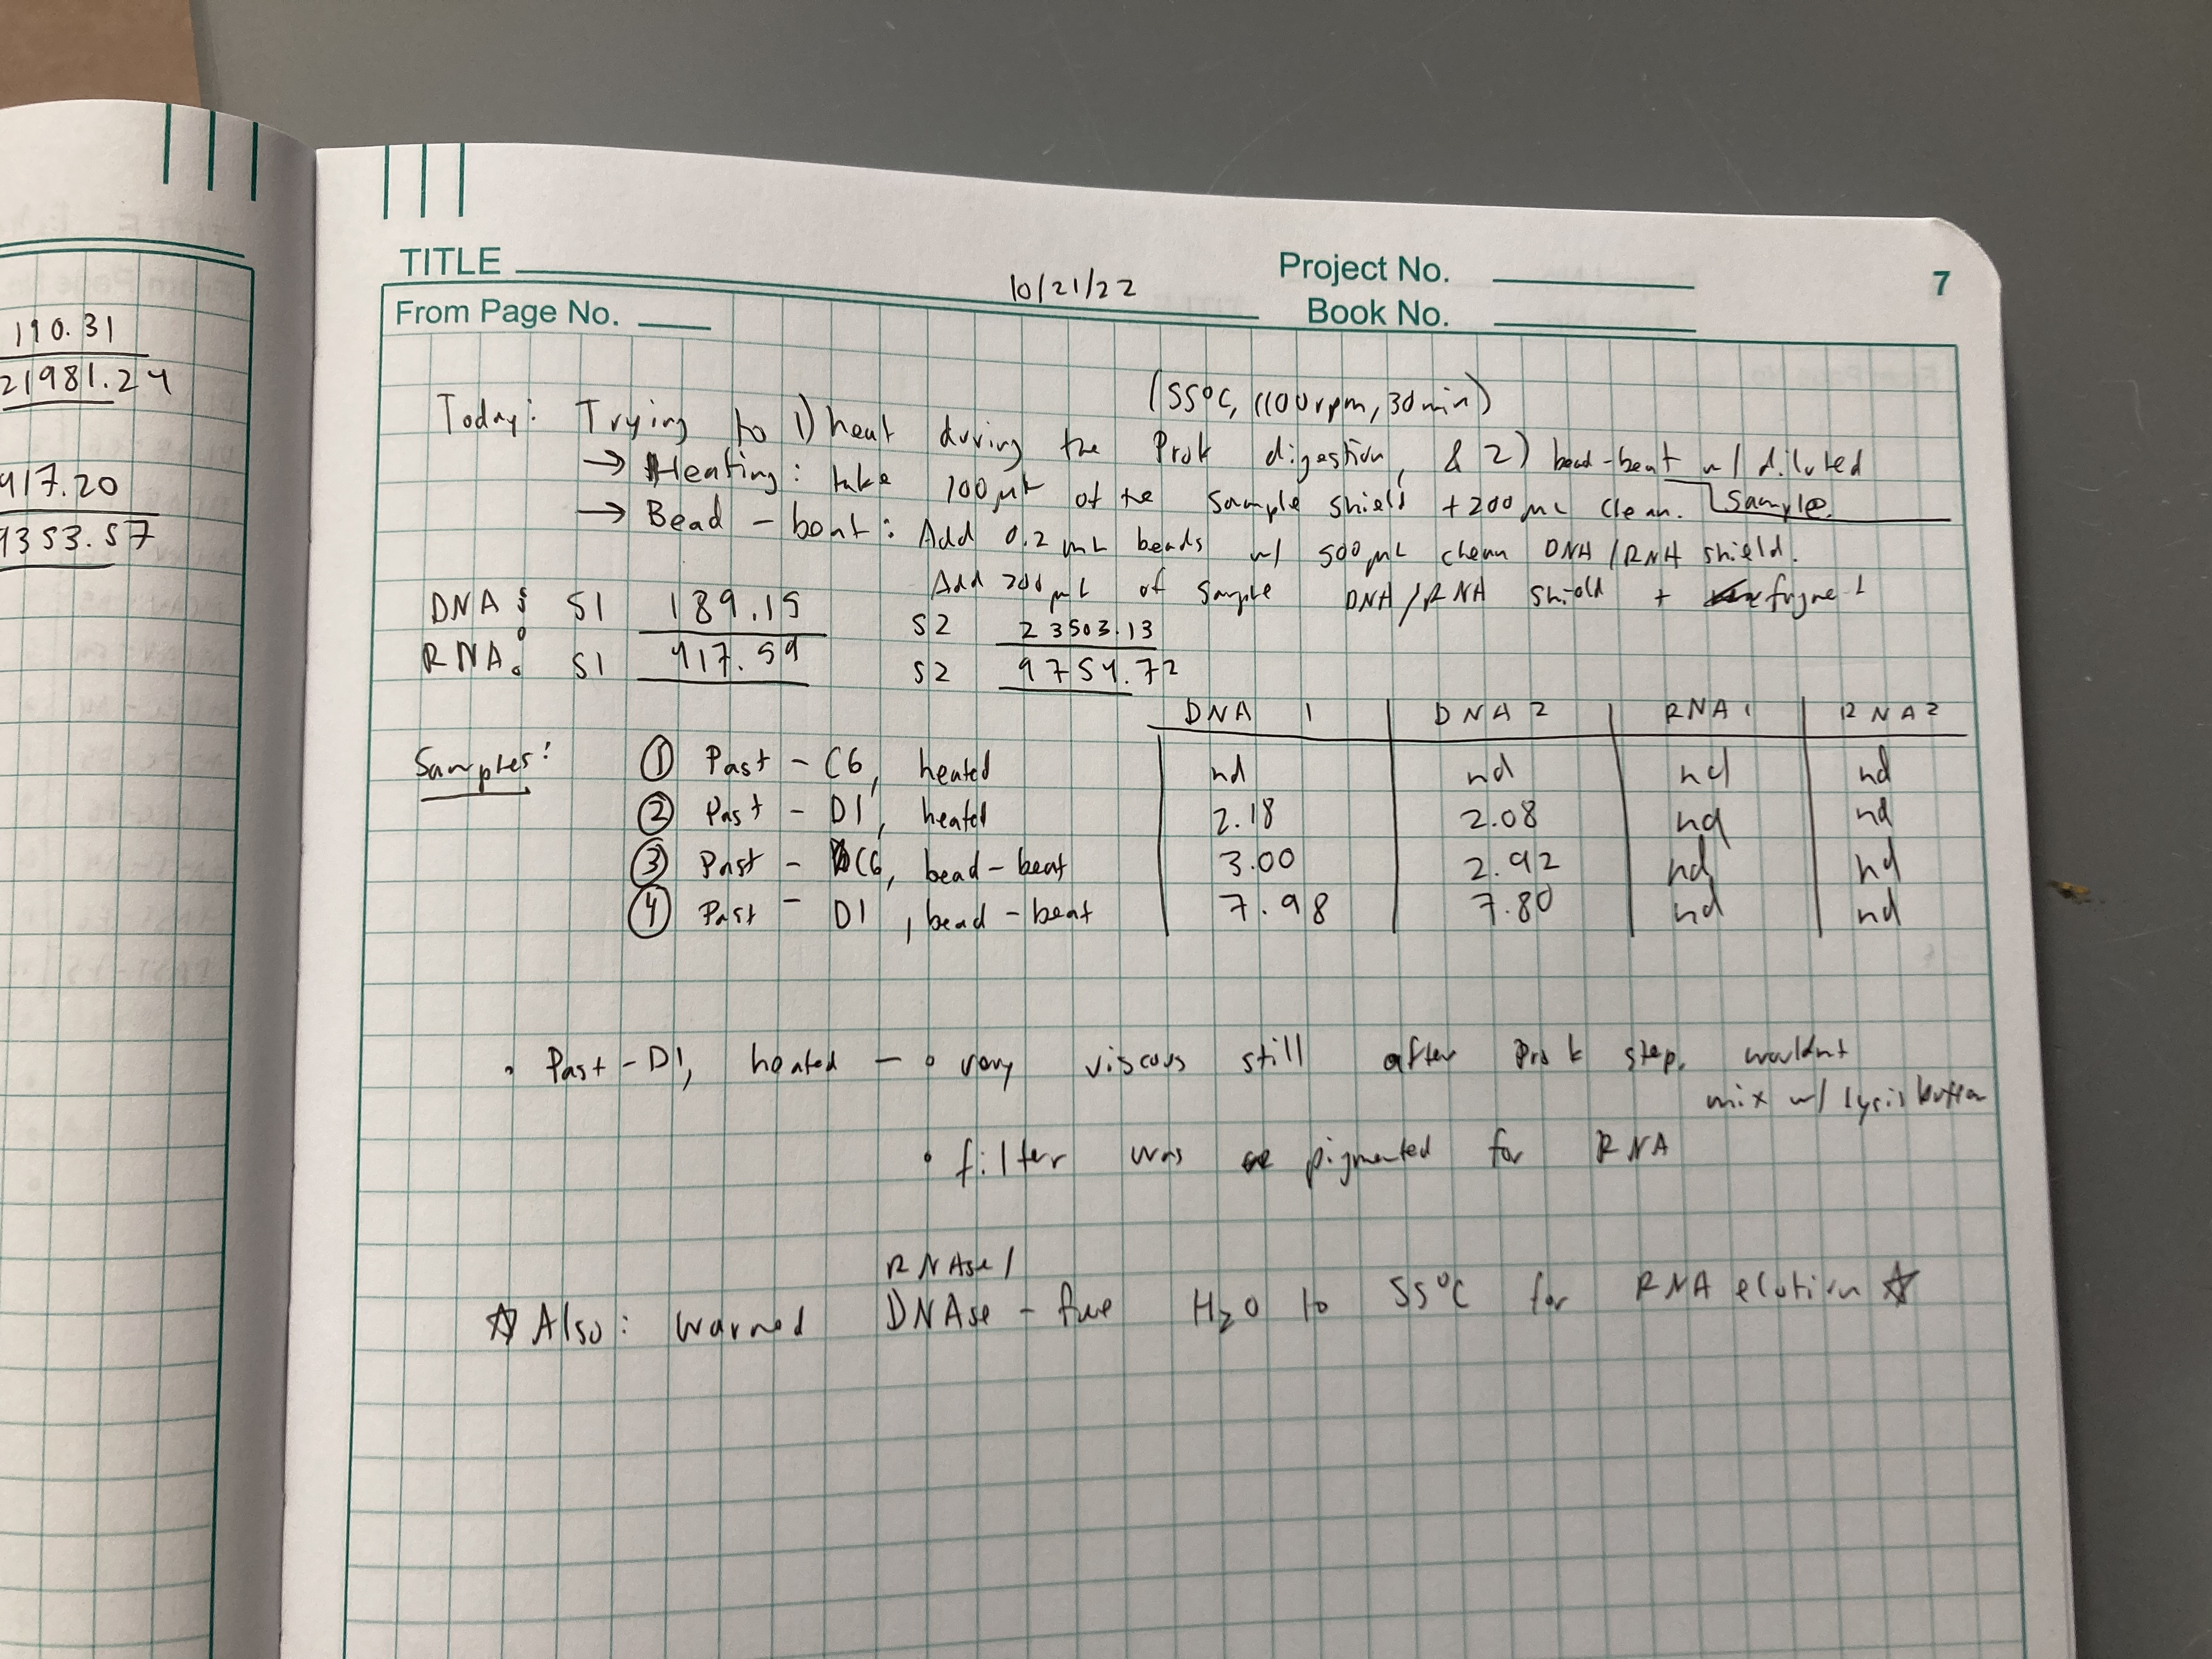 110.31
21981.24
417.20
9353.57
TITLE
10/21/22
Project No.
7
From Page No.
Book No.
(55°C, 1100rpm, 30min)
Today: Trying to 1) heat during the ProK digestion, & 2) bead-beat w/ diluted
sample.
→ Heating: take 100µL of the sample shield + 200µL clean.
→ Bead-beat: Add 0.2 mL beads w/ 500µL clean DNA/RNA shield.
Add 200µL of sample DNA/RNA shield +
DNA: S1 189.15 S2 23503.13
RNA: S1 417.59 S2 9754.72
DNA 1 DNA 2 RNA 1 RNA 2
Samples: ① Past - C6, heated nd nd nd nd
② Past - D1, heated 2.18 2.08 nd nd
③ Past - C6, bead-beat 3.00 2.92 nd nd
④ Past - D1, bead-beat 7.98 7.80 nd nd
• Past-D1, heated - • very viscous still after ProK step, wouldnt
mix w/ lysis buffer
• filter was pigmented for RNA
RNAse/
☆ Also: warmed DNAse-free H₂O to 55°C for RNA elution ☆